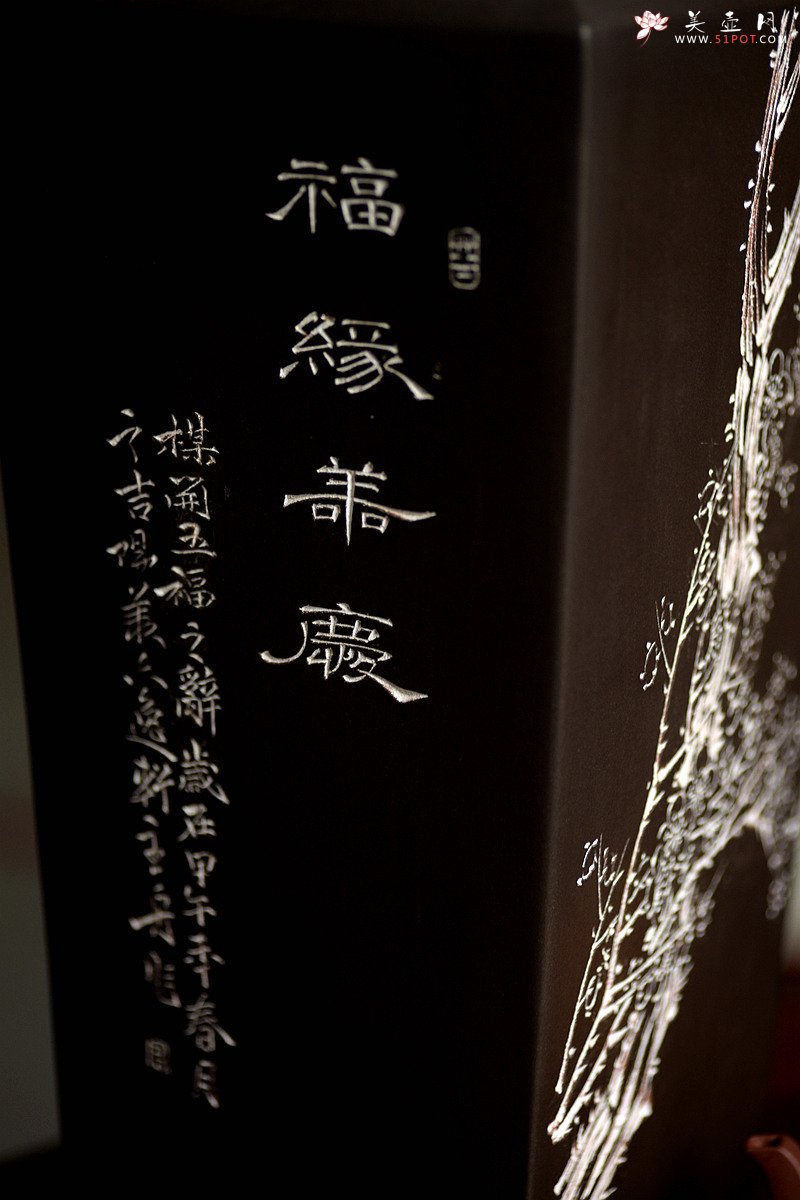 美壶网
WWW.51POT.COM
福緣善慶
楳開五福之辭歲在甲午年春月
之吉陽羨
軒主